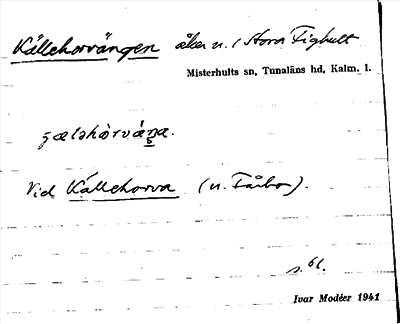 Källehorvängen åker u. Stora Fighult
Misterhults sn, Tunaläns hd, Kalm. l.
Vid Källehorva (u. Fårbo).
s. 61.
Ivar Modéer 1941